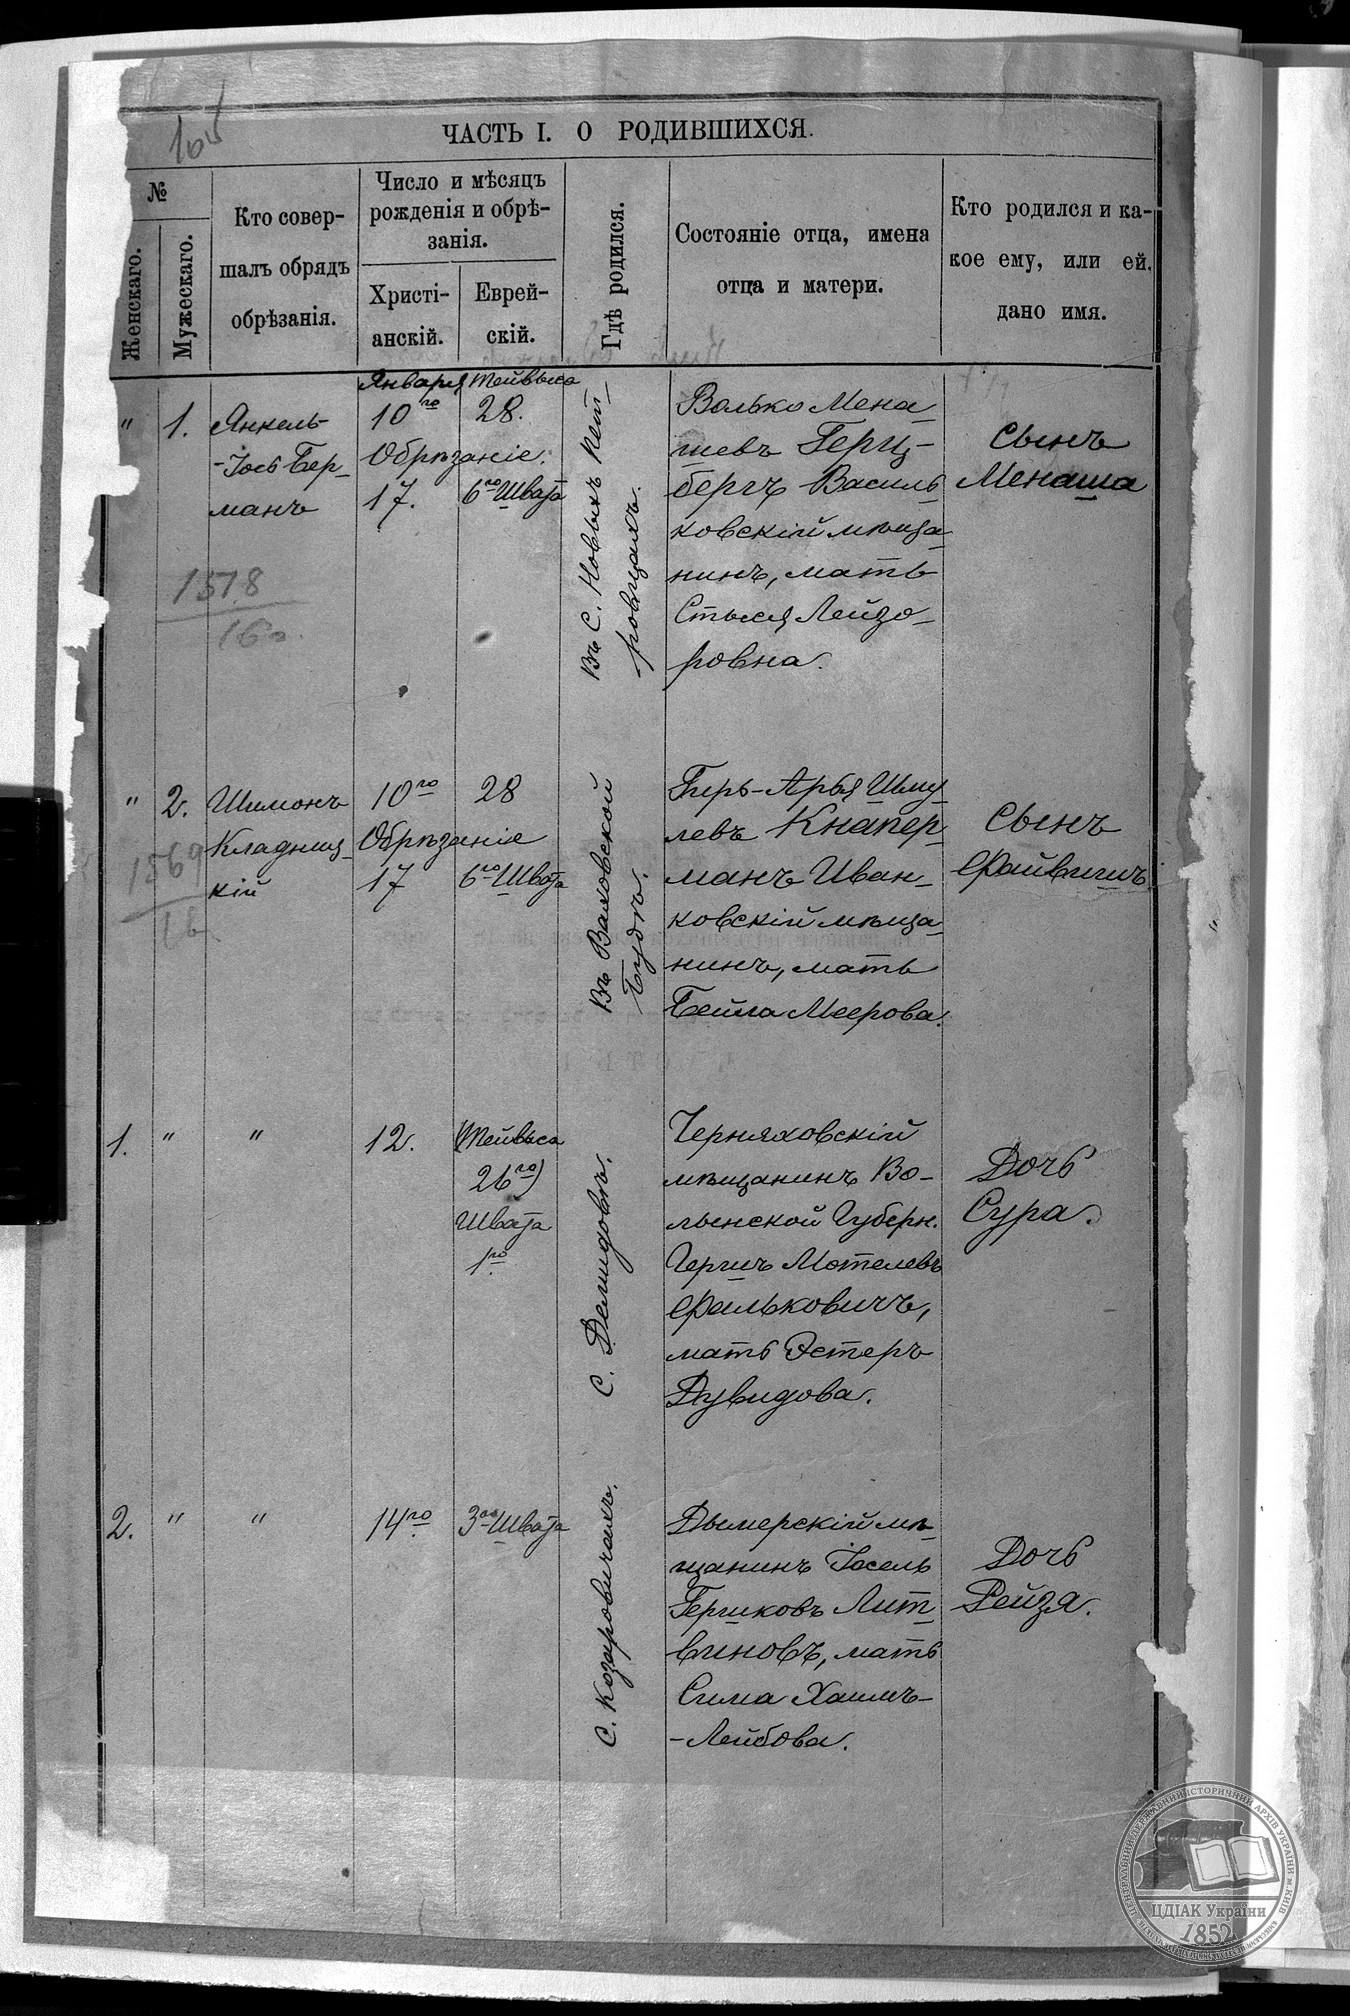 105
ЧАСТЬ I. О РОДИВШИХСЯ.
№
Женскаго.
Мужескаго.
Кто совер-
шалъ обрядъ
обрѣзанія.
Число и мѣсяцъ
рожденія и обрѣ-
занія.
Христі-
анскій.
Еврей-
скій.
Гдѣ родился.
Состояніе отца, имена
отца и матери.
Кто родился и ка-
кое ему, или ей,
дано имя.
" 1.
Янкель-
-Іось Бер-
манъ
Января
10го
Обрѣзаніе.
17.
Тейвыса
28.
6го Швата
Въ С. Новыхъ Пет-
ровцахъ.
Волько Мена
шевъ Герц-
бергъ Василь
ковскій мѣща-
нинъ, мать
Стыся Лейзо-
ровна.
Сынъ
Менаша
1518
" 2.
Шимонъ
Кладниц-
кій
10го
Обрѣзаніе
17
28
6го Швата
Въ Валовской
Будѣ.
Гирь-Арья Шму-
левъ Кнапер-
манъ Иван-
ковскій мѣща-
нинъ, мать
Бейла Меерова.
Сынъ
Файвишъ
1569
1. " "
12.
(Тейвыса
26го)
Швата
1го
С. Демидовѣ.
Черняховскій
мѣщанинъ Во-
лынской Губерн.
Гершъ Мотелевъ
Фальковичъ,
мать Эстеръ
Дувидова.
Дочь
Сура.
2. " "
14го
3го Швата
С. Козаровичахъ.
Дымерскій мѣ-
щанинъ Іосель
Гершковъ Лит-
виновъ, мать
Сима Хаимъ-
-Лейбова.
Дочь
Рейзя.
ЦДІАК України
1852